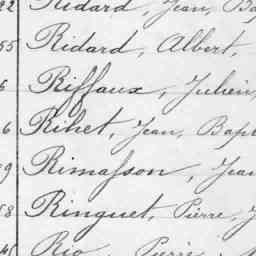 22 Ridard, Jean, Bap
55 Ridard, Albert,
Riffaux, Julien,
6 Rihet, Jean, Bapt
9 Rimasson, Jean
58 Ringuet, Pierre, J
Rio, Pierre,